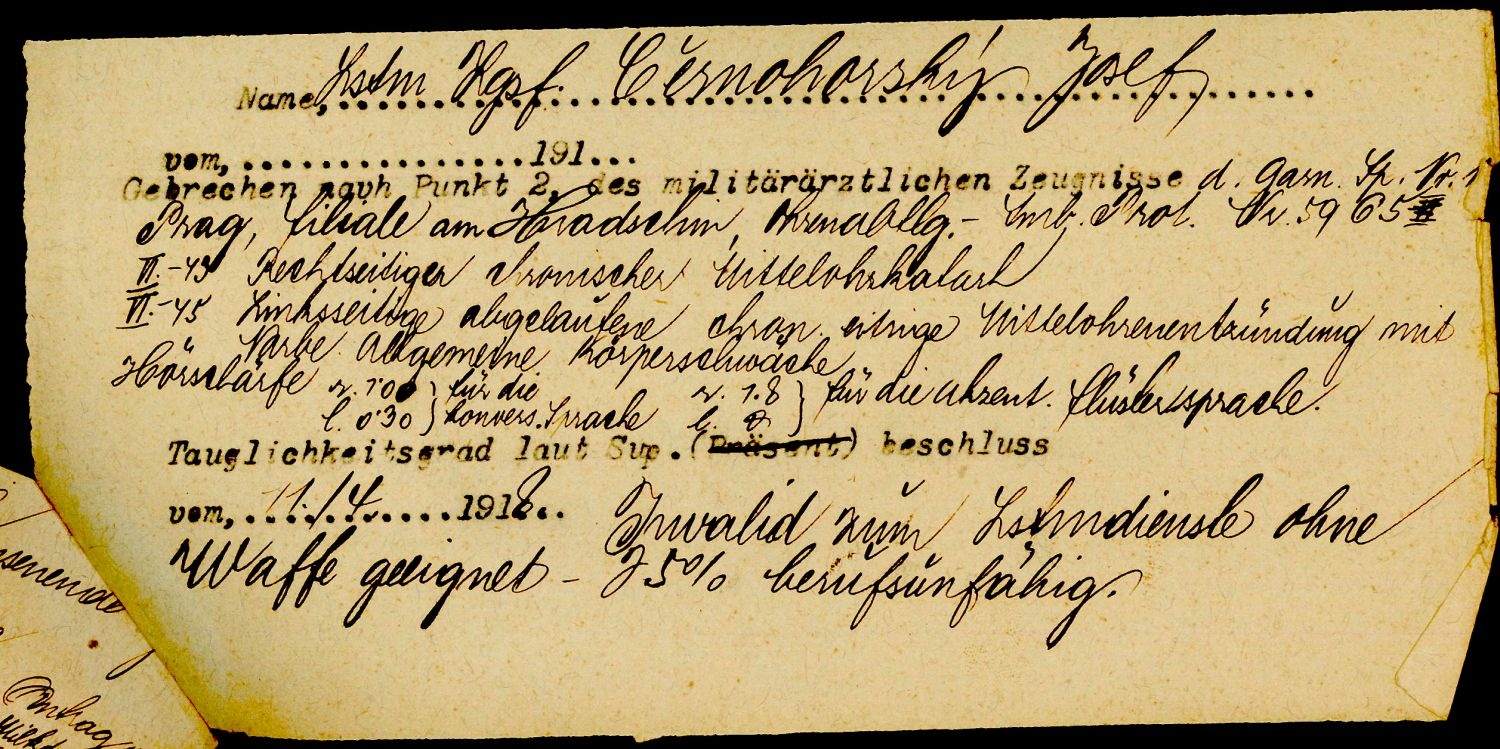 Name, Lstm Kgsf. Černohorský Josef
vom, ................191...
Gebrechen navh Punkt 2, des militärärztlichen Zeugnisse d. Garn. Sp. Nr. 1
Prag, filiale am Hradschin, Ohrenabtlg. - Amb. Prot. Nr. 5965
VI.-43 Rechtseitiger chronischer Mittelohrkatarh
VI.-45 Linksseitige abgelaufene chron. eitrige Mittelohrenentzündung mit
Narbe. Allgemeine Körperschwäche
Hörschärfe r. 1'00 } für die r. 1.8 } für die akzent. flüstersprache.
l. 0'30 } konvers. Sprache l.
Tauglichkeitsgrad laut Sup. (Präsent) beschluss
vom, 11./4. 1918. Invalid zum Lstmdienste ohne
Waffe geeignet - 25% berufsunfähig.
senende